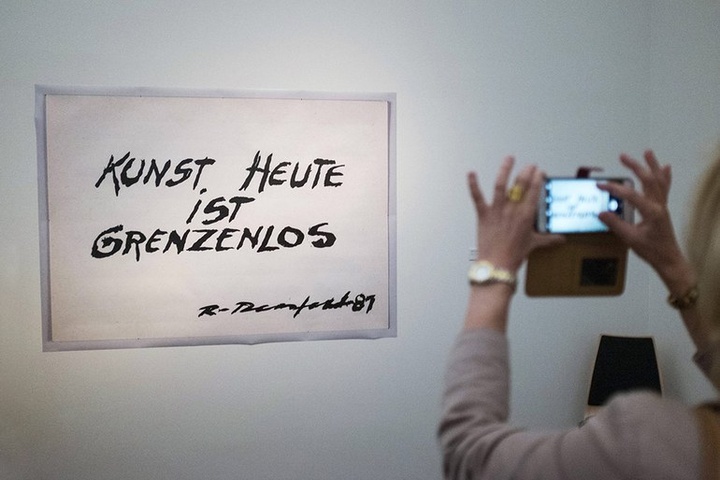 KUNST HEUTE
IST
GRENZENLOS
89